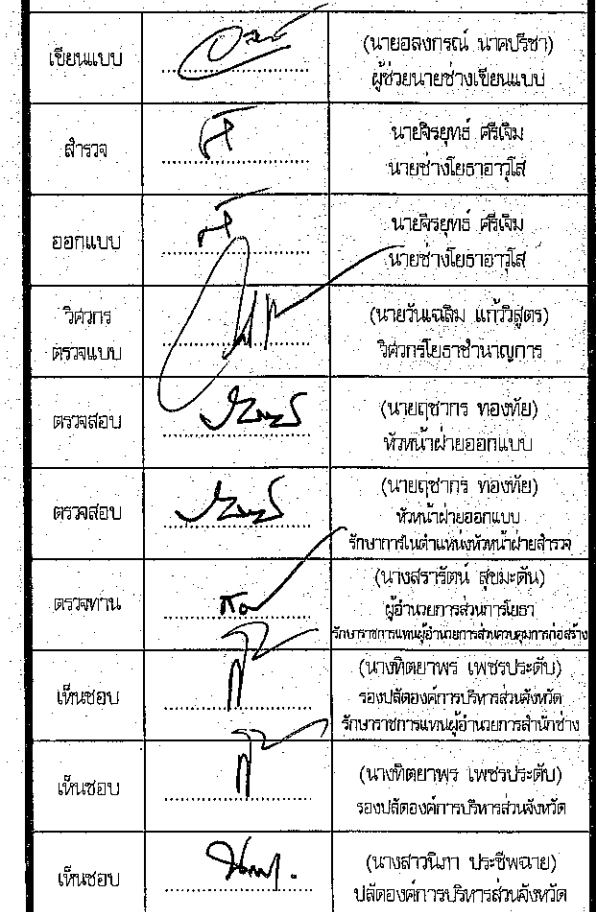 เขียนแบบ
(นายอลงกรณ์ นาคปรีชา)
ผู้ช่วยนายช่างเขียนแบบ
สำรวจ
นายจิรยุทธ์ ศรีเจิม
นายช่างโยธาอาวุโส
ออกแบบ
นายจิรยุทธ์ ศรีเจิม
นายช่างโยธาอาวุโส
วิศวกร
ตรวจแบบ
(นายวันเฉลิม แก้ววิสูตร)
วิศวกรโยธาชำนาญการ
ตรวจสอบ
(นายฤชากร ทองทัย)
หัวหน้าฝ่ายออกแบบ
ตรวจสอบ
(นายฤชากร ทองทัย)
หัวหน้าฝ่ายออกแบบ
รักษาการในตำแหน่งหัวหน้าฝ่ายสำรวจ
ตรวจทาน
(นางสรารัตน์ สุขมะตัน)
ผู้อำนวยการส่วนการโยธา
รักษาราชการแทนผู้อำนวยการส่วนควบคุมการก่อสร้าง
เห็นชอบ
(นางทิตยาพร เพชรประดับ)
รองปลัดองค์การบริหารส่วนจังหวัด
รักษาราชการแทนผู้อำนวยการสำนักช่าง
เห็นชอบ
(นางทิตยาพร เพชรประดับ)
รองปลัดองค์การบริหารส่วนจังหวัด
เห็นชอบ
(นางสาวนิภา ประชีพฉาย)
ปลัดองค์การบริหารส่วนจังหวัด